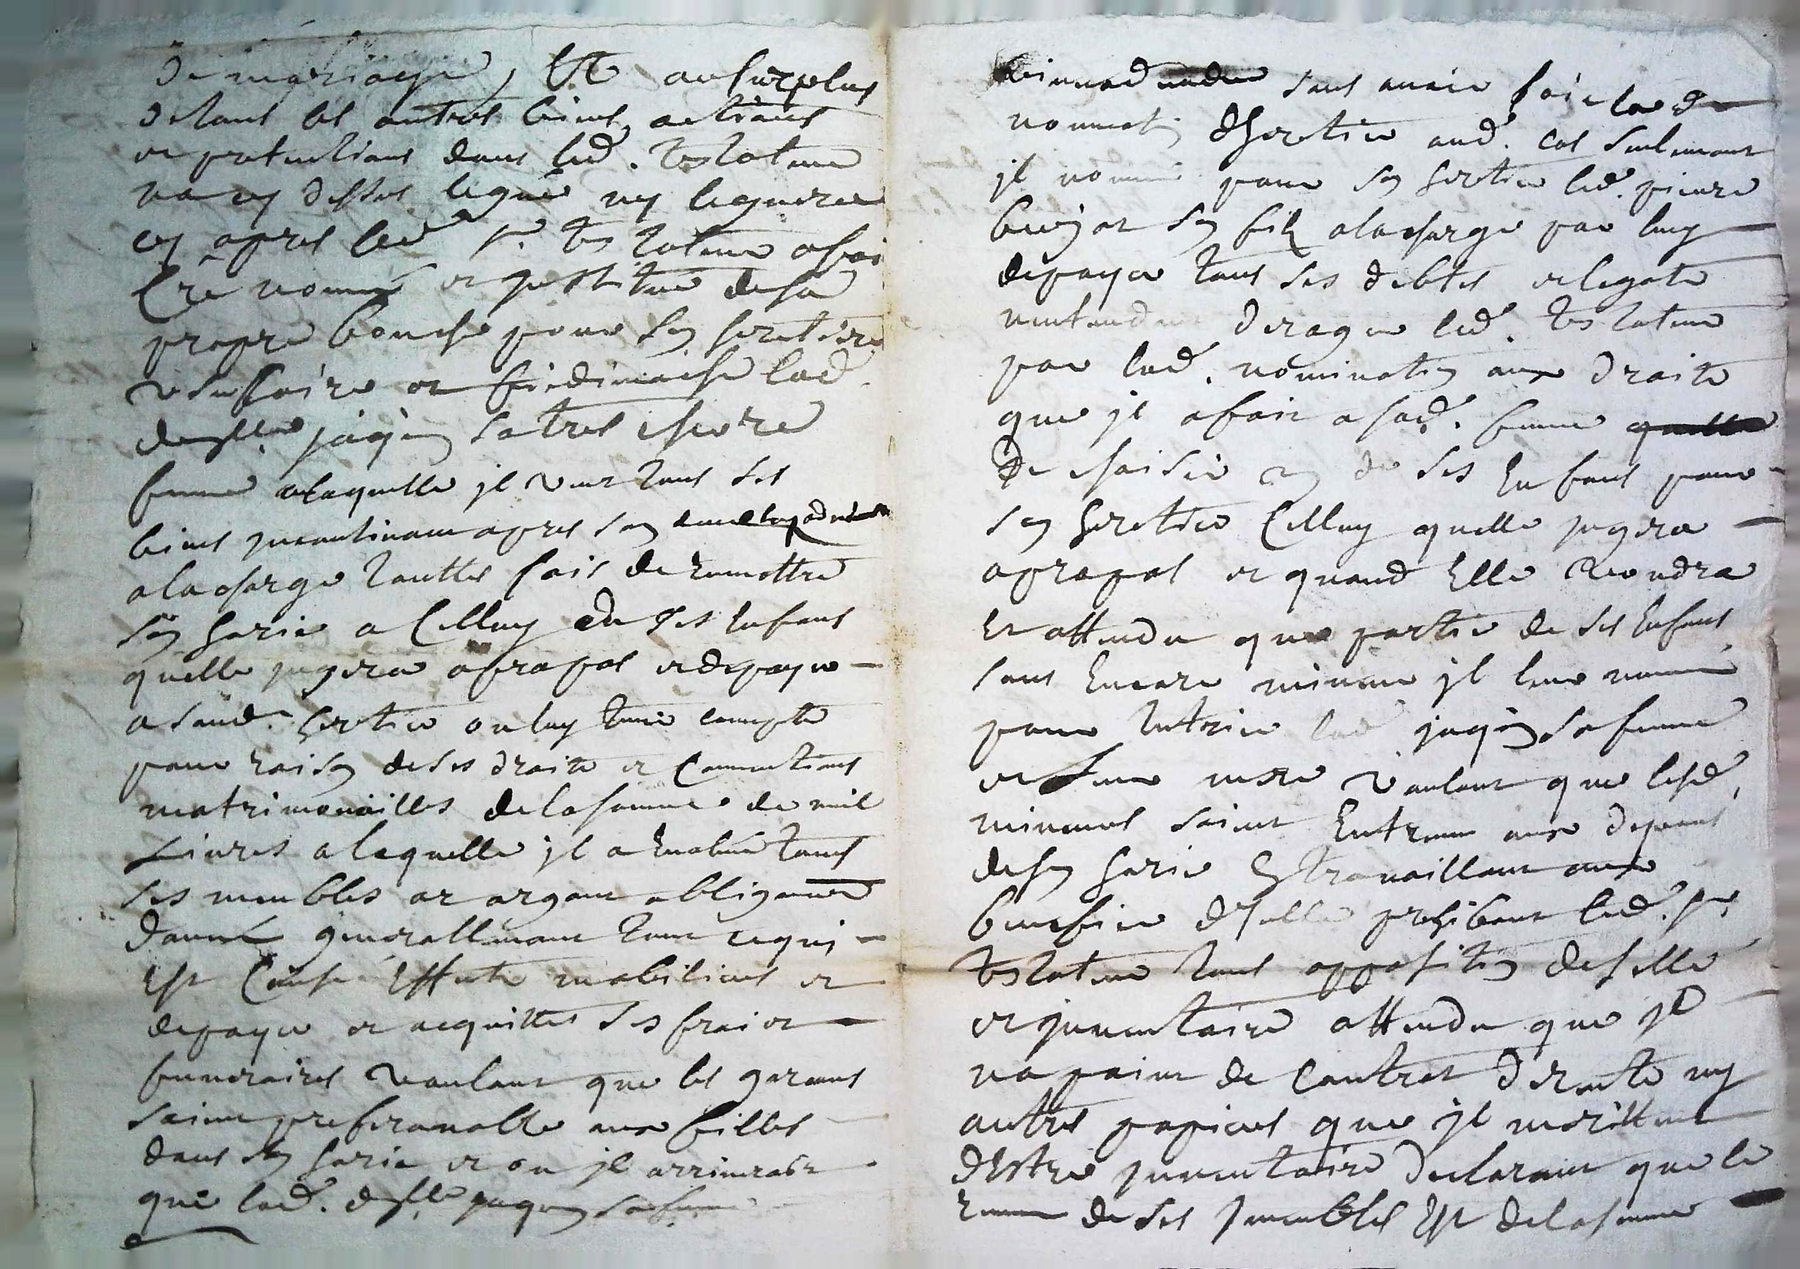 de mariage, Et au surplus
de tous les autres biens, actions
et pretentions dont led. testateur
na cy dessus legué ny leguera
cy apres led sr. testateur a fai
cré nommé et justitué de sa
propre bouche pour son heretiere
et fiediciaise lad.
deyslle. jaqin sa tres chere
femme a laquelle jl veut tous ses
biens jncontinant apres son
a la charge touttes fois de remettre
son herie a Celluy de ses Enfans
quelle jugera apropos et de payer
a saud. heretier ou luy tenir compte
pour raison de ses droits et Conventions
matrimonailles de la somme de mil
Livres a laquelle jl a Evalué tous
ses meubles or argant obligances
danrés generallemant tout ce qui
Est Censé Effects mobiliers et
de payer et acquitter ses frais
funeraires voulant que les garsons
soint preferanable aux filles
dans son herie et ou jl arriveroit
que lad. deyslle jaqin sa femme
sans avoir fait lad
nomination dheretier aud. cas seulemant
jl nomme pour son heretier led. pierre
son fils a la charge par luy
de payer tous ses debtes et legats
nentendant deroger led. testateur
par lad. nomination aux droits
que jl a fait a sad. femme quelle
de choisir un de ses Enfans pour
son heretier Celluy quelle jugera
apropos et quand Elle voudra
Et attendu que partie de ses Enfans
sont Encore mineurs jl leur nomme
pour tutrice lad jaqin sa femme
et leur mere voulant que lesd.
mineurs soint Entretenu aux depans
de son herie En travaillant aux
benefice dJcelle prohibant led. sr.
testateur tous apposition de selle
et jnventaire attendu que jl
na point de Contrat de rante ny
autres papiers que jl merittent
dEstre jnventaire declarant que le
revenu de ses jmeubles Est de la somme